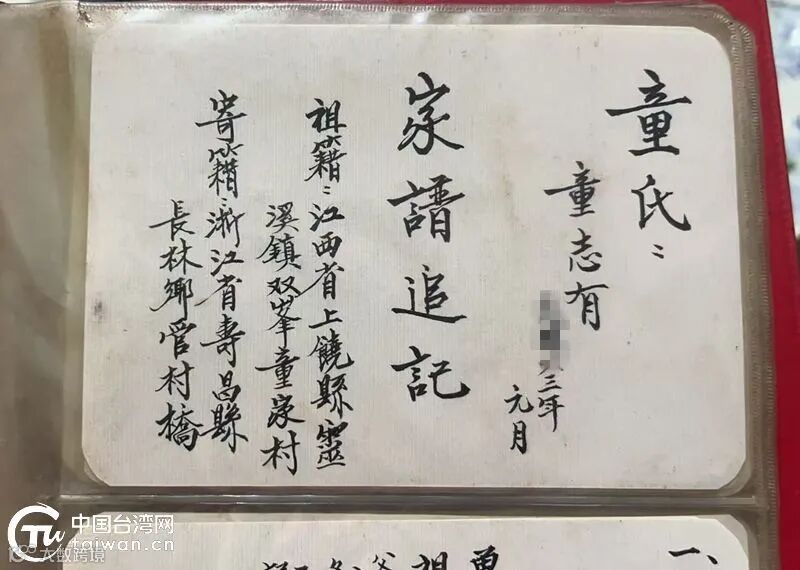 童氏：
童志有
三年
元月
家譜追記
祖籍：江西省上饒縣靈
溪鎮双峯童家村
寄籍：浙江省壽昌縣
長林鄉管村橋
一、
曾
祖
中国台湾网
taiwan.cn
大数跨境